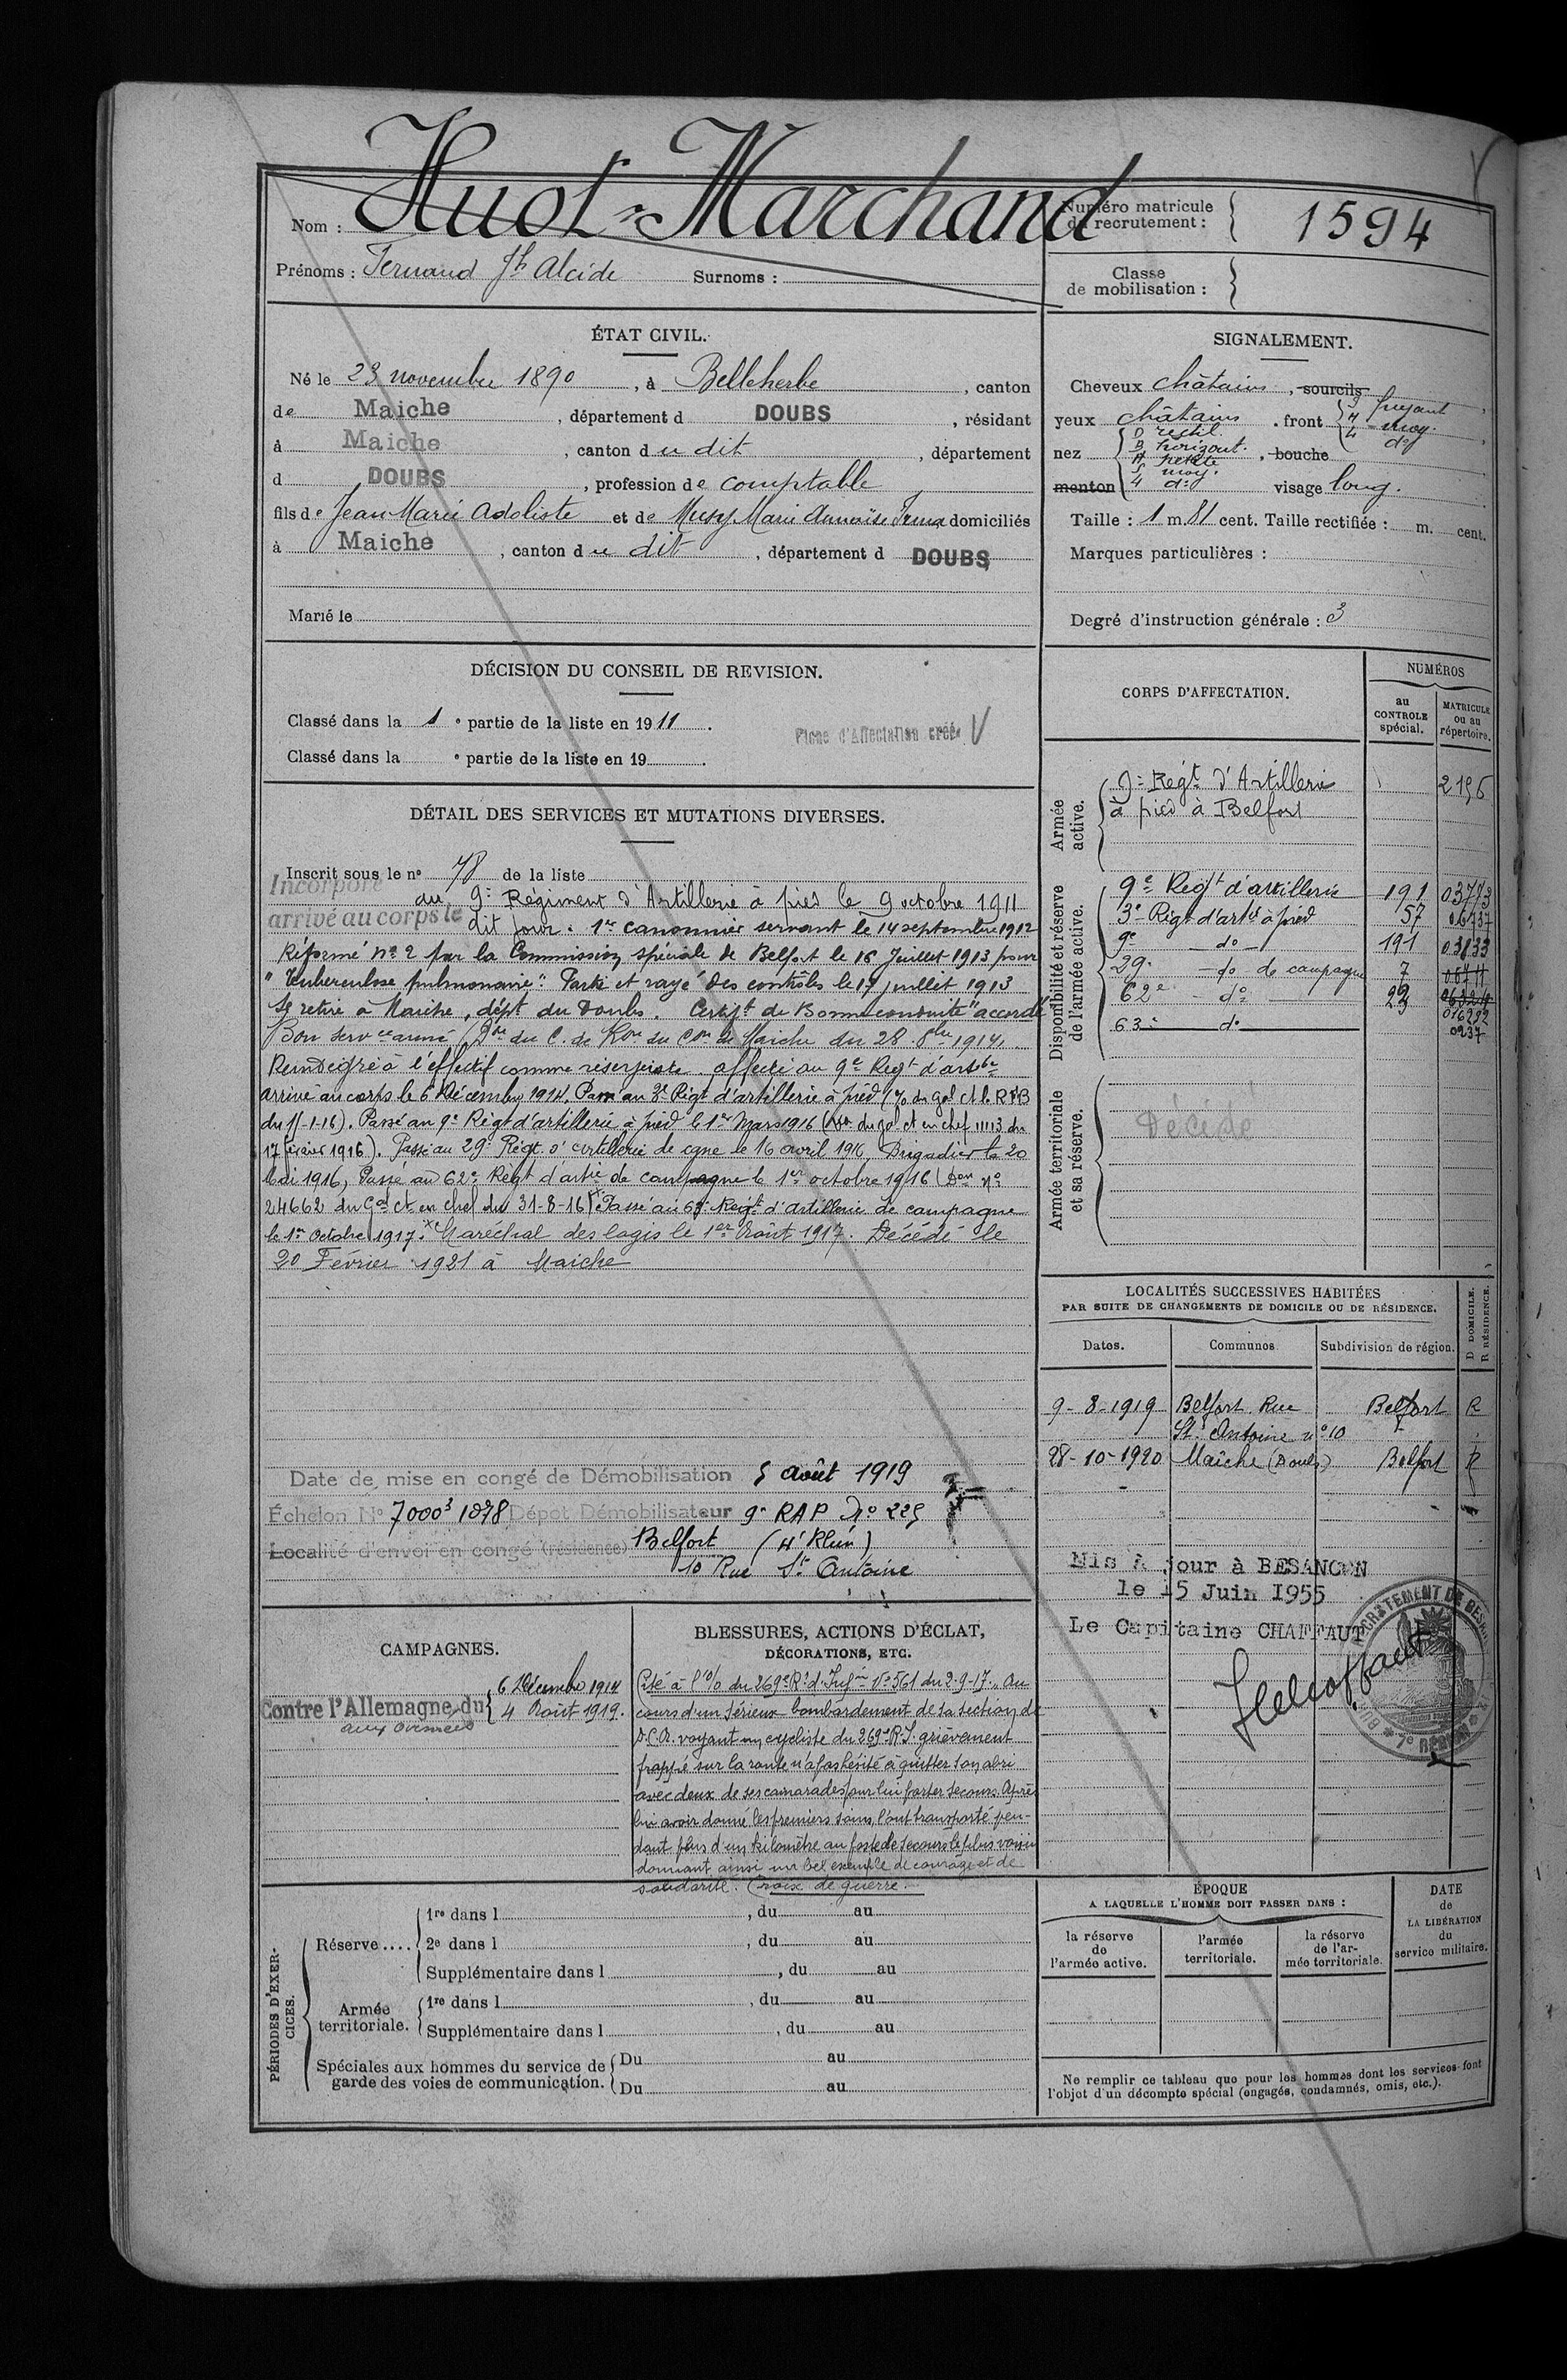 Nom : Huot-Marchand
Prénoms : Fernand Jh Alcide Surnoms :
Numéro matricule
de recrutement : 1594
Classe
de mobilisation :
ÉTAT CIVIL.
Né le 23 novembre 1890, à Belleherbe, canton
de Maiche, département d DOUBS, résidant
à Maiche, canton du dit, département
d DOUBS, profession de comptable
fils de Jean Marie Adoliste et de Musy Marie Irma domiciliés
à Maiche, canton du dit, département d DOUBS
Marié le
SIGNALEMENT.
Cheveux châtains, sourcils
yeux châtains. front { fuyant
moy.
do
nez { D rectil.
B horizont.
H petite
S moy.
4 do
, bouche
menton visage long.
Taille : 1 m. 81 cent. Taille rectifiée : m. cent.
Marques particulières :
Degré d'instruction générale : 3
DÉCISION DU CONSEIL DE REVISION.
Classé dans la 1e partie de la liste en 1911.
Classé dans la e partie de la liste en 19 .
Fiche d'Affectation créée V
DÉTAIL DES SERVICES ET MUTATIONS DIVERSES.
Inscrit sous le no 78 de la liste
Incorporé au 9e Régiment d'Artillerie à pied le 9 octobre 1911
arrivé au corps le dit jour. 1er canonnier servant le 14 septembre 1912
Réformé no 2 par la Commission spéciale de Belfort le 16 Juillet 1913 pour
"Tuberculose pulmonaire". Parti et rayé des contrôles le 17 juillet 1913
Se retire à Maiche, dépt du Doubs. Certift de Bonne conduite "accordé"
Bon servce armé (Don du C. de Ron du Con de Maiche du 28. 8bre 1914.
Réintégré à l'effectif comme réserviste affecté au 9e Regt d'artie
arrivé au corps le 6 Décembre 1914. Passé au 3e Régt d'artillerie à pied (% du Gal Ct la R F B
du 11-1-16). Passé au 9e Régt d'artillerie à pied le 1er Mars 1916 (Don du Gal Ct en chef 11113 du
17 février 1916). Passé au 29e Régt d'artillerie de cgne le 16 avril 1916. Brigadier le 20
Mai 1916, Passé au 62e Régt d'artie de campagne le 1er octobre 1916 (Don No
24662 du Gal Ct en chef du 31-8-16) x Passé au 63e Regt d'artillerie de campagne
le 1er Octobre 1917. x Maréchal des logis le 1er Août 1917. Décédé le
20 Février 1921 à Maiche
Date de mise en congé de Démobilisation 5 août 1919
Échelon No 70003 1078 Dépôt Démobilisateur 9e RAP No 225
Localité d'envoi en congé (résidence) Belfort
10 Rue St Antoine
CORPS D'AFFECTATION.
NUMÉROS
au
CONTROLE
spécial.
MATRICULE
ou au
répertoire.
Armée
active.
9e Régt d'Artillerie 2196
à pied à Belfort
Disponibilité et réserve
de l'armée active.
9e Regt d'artillerie 191 03773
3e Régt d'artie à pied 57
9e do 191 03833
29e do de campagne 7
62e do 23
63e do 0237
Armée territoriale
et sa réserve.
Décédé
LOCALITÉS SUCCESSIVES HABITÉES
PAR SUITE DE CHANGEMENTS DE DOMICILE OU DE RÉSIDENCE.
Dates. Communes Subdivision de région. D DOMICILE. R RÉSIDENCE.
9-8-1919 Belfort Rue Belfort R
St Antoine no 10
28-10-1920 Maîche (Doubs) Belfort R
Mis à jour à BESANCON
le 15 Juin 1955
Le Capitaine CHAFFAUT
CAMPAGNES.
Contre l'Allemagne du { 6 Décembre 1914
4 Août 1919.
aux armées
BLESSURES, ACTIONS D'ÉCLAT,
DÉCORATIONS, ETC.
Cité à l'o/o du 269e Rt d'Infie No 561 du 2-9-17. Au
cours d'un sérieux bombardement de sa section de
D.C.A. voyant un cycliste du 269e R.I. grièvement
frappé sur la route n'a pas hésité à quitter son abri
avec deux de ses camarades pour lui porter secours. Après
lui avoir donné les premiers soins, l'ont transporté pen-
dant plus d'un kilomètre au poste de secours le plus voisin
donnant ainsi un bel exemple de courage et de
solidarité. Croix de guerre.
PÉRIODES D'EXER-
CICES.
Réserve.... 1re dans l , du au
2e dans l , du au
Supplémentaire dans l , du au
Armée
territoriale. 1re dans l , du au
Supplémentaire dans l , du au
Spéciales aux hommes du service de
garde des voies de communication. Du au
Du au
ÉPOQUE
A LAQUELLE L'HOMME DOIT PASSER DANS :
la réserve
de
l'armée active.
l'armée
territoriale.
la réserve
de l'ar-
mée territoriale.
DATE
de
LA LIBÉRATION
du
service militaire.
Ne remplir ce tableau que pour les hommes dont les services font
l'objet d'un décompte spécial (engagés, condamnés, omis, etc.).